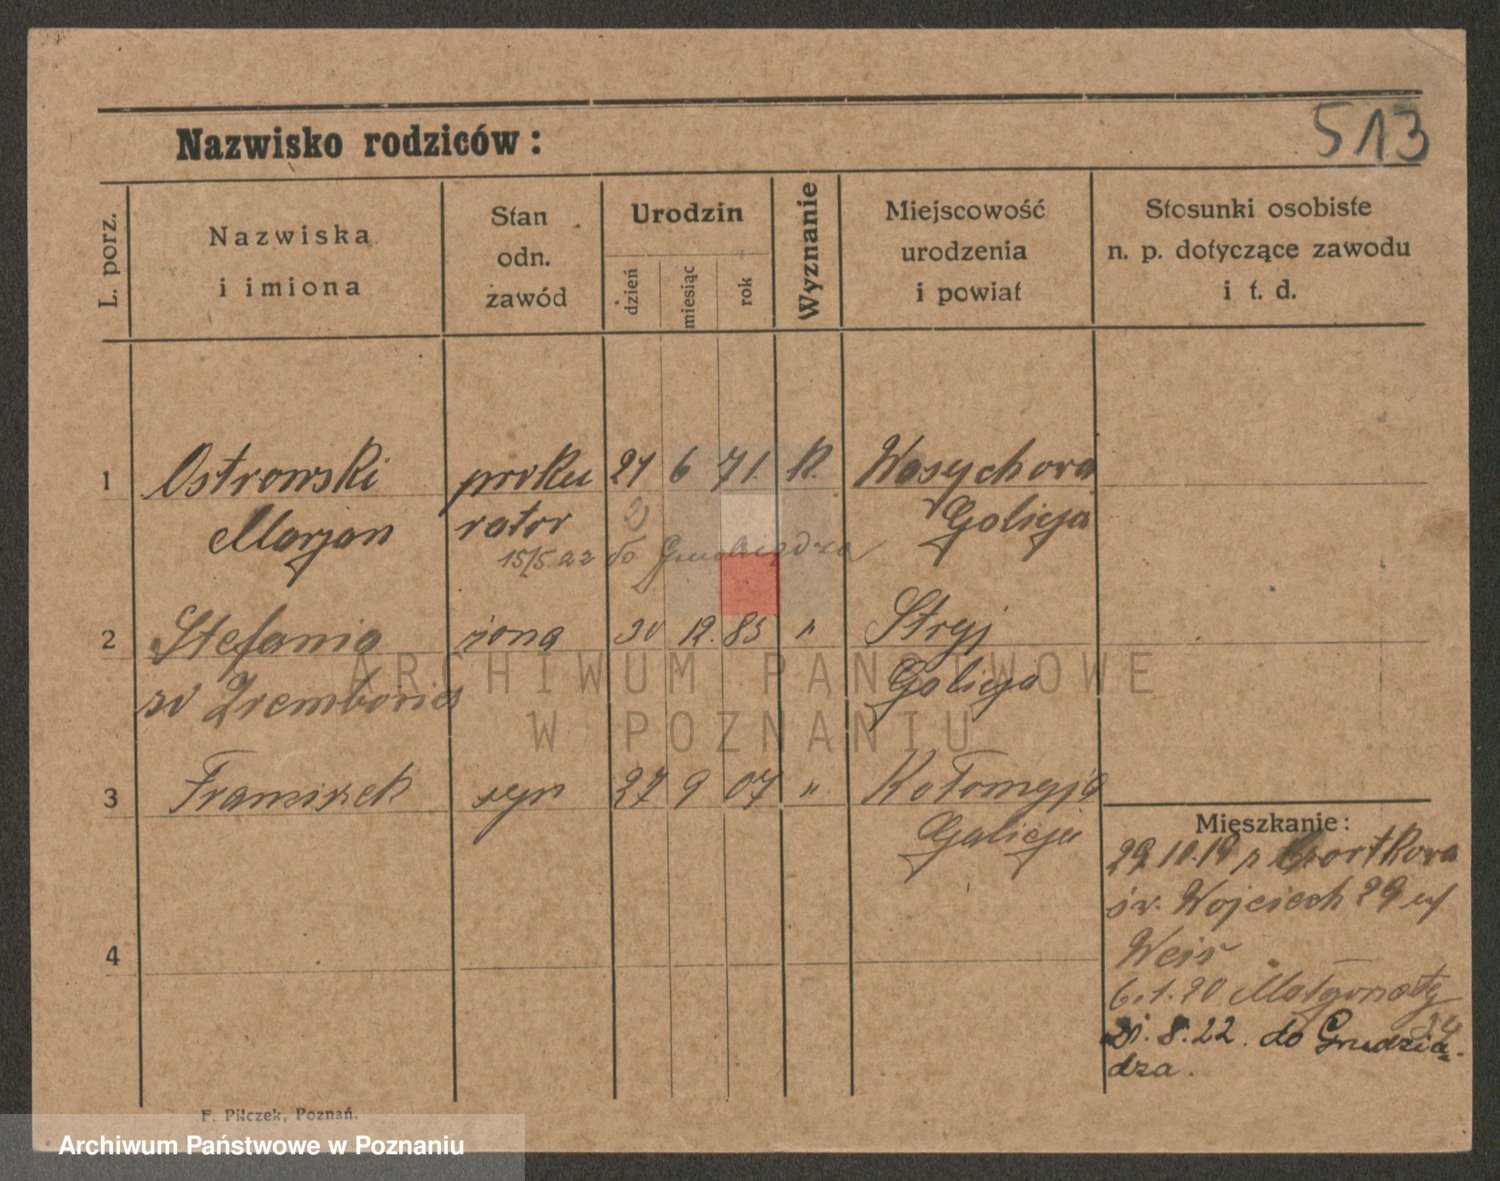 513
Nazwisko rodziców :
L. porz.
Nazwiska
i imiona
Stan
odn.
zawód
Urodzin
dzień
miesiąc
rok
Wyznanie
Miejscowość
urodzenia
i powiat
Stosunki osobiste
n. p. dotyczące zawodu
i t. d.
1 Ostrowski proku 21 6 71. K.
Marjan rator Galicja
15/5.22 do Grudziądza
2 Stefania żona 30 12. 85 " Stryj
Galicja
3 Franciszek syn 27 9 07 " Kołomyja
Galicja
Mieszkanie :
29.10.19 z Czortkowa
św. Wojciech 29 u/
4
6.1.20 Małgorzaty
31.8.22. do Grudzią-
dza.
F. Pilczek, Poznań.
ARCHIWUM PAŃSTWOWE
W POZNANIU
Archiwum Państwowe w Poznaniu